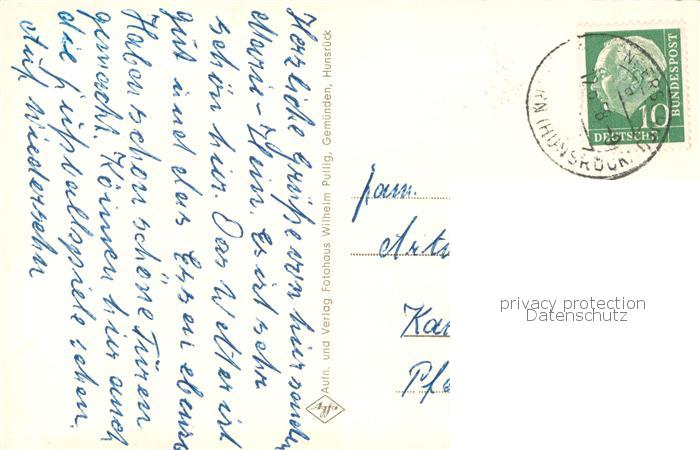 Herzliche Grüße von hier sendet
Marie-Klein. Es ist sehr
schön hier. Das Wetter ist
gut und das Essen ebenso
Haben schon schöne Turen
gemacht. Können hir auch
die Fusballspiele sehen.
Auf Wiedersehn
Aufn. und Verlag Fotohaus Wilhelm Pullig, Gemünden, Hunsrück
Agfa
Fam.
Kar
Pfa
10
DEUTSCHE
BUNDESPOST
(HUNSRÜCK)
privacy protection
Datenschutz